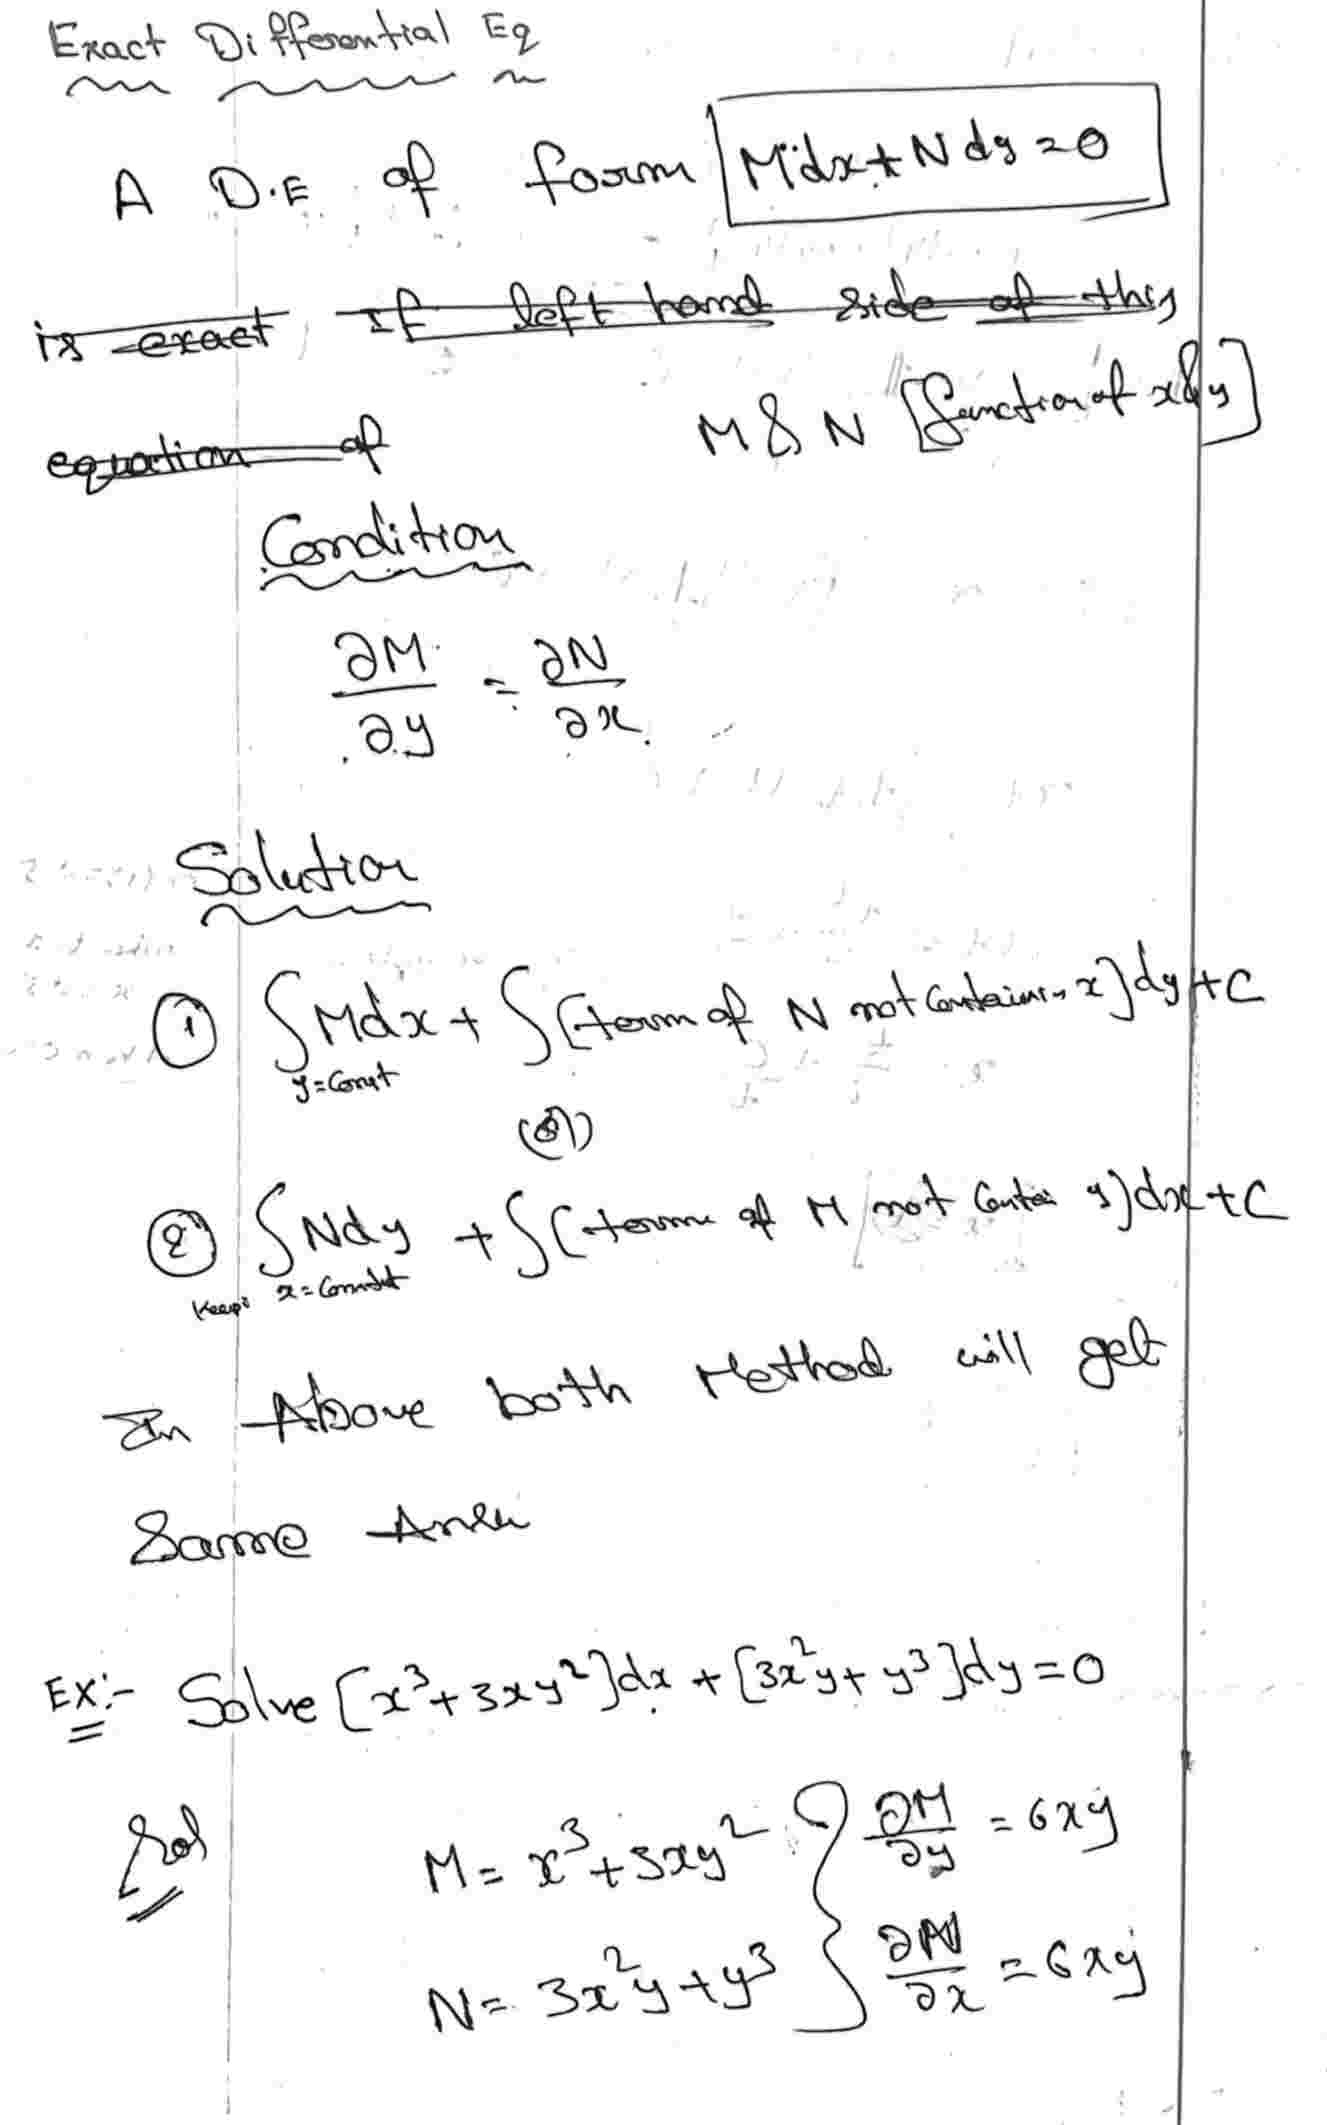 Exact Differential Eq
A D.E of form Mdx + Ndy = 0
is exact if left hand side of this
equation of
M & N [function of x & y]
Condition
∂M/∂y = ∂N/∂x
Solution
① ∫Mdx + ∫(term of N not containing x)dy + C
y = Const
(or)
② ∫Ndy + ∫(terms of M not Contai y)dx + C
Keep x = Constant
In Above both Method will get
Same Answ
EX:- Solve [x³ + 3xy²]dx + [3x²y + y³]dy = 0
Sol
M = x³ + 3xy² } ∂M/∂y = 6xy
N = 3x²y + y³ } ∂N/∂x = 6xy